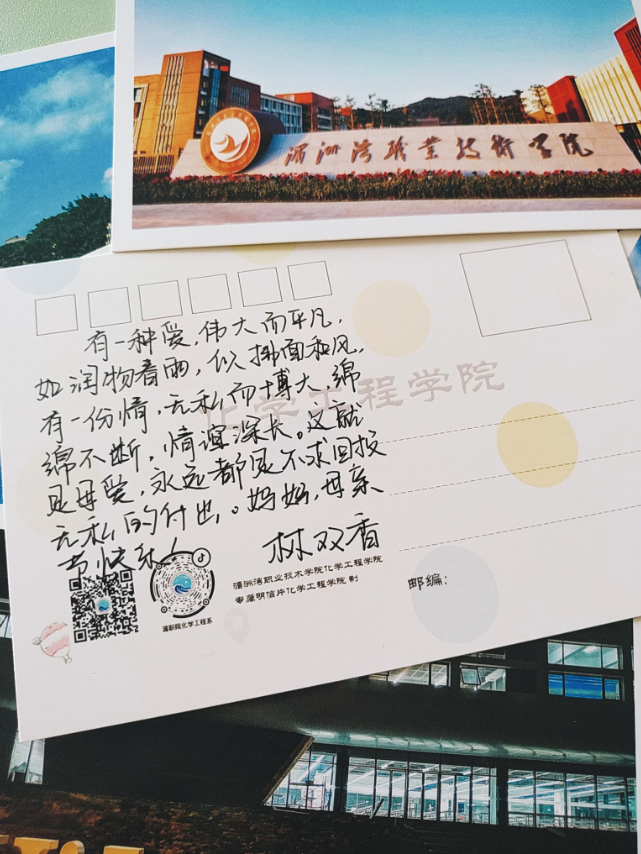 湄洲湾职业技术学院
有一种爱,伟大而平凡,
如润物春雨,似拂面和风,
有一份情,无私而博大,绵
绵不断,情谊深长。这就
是母爱,永远都是不求回报
无私的付出。妈妈,母亲
节快乐!
林双香
化学工程学院
湄职院化学工程系
湄洲湾职业技术学院化学工程学院
专属明信片化学工程学院 制
邮编: